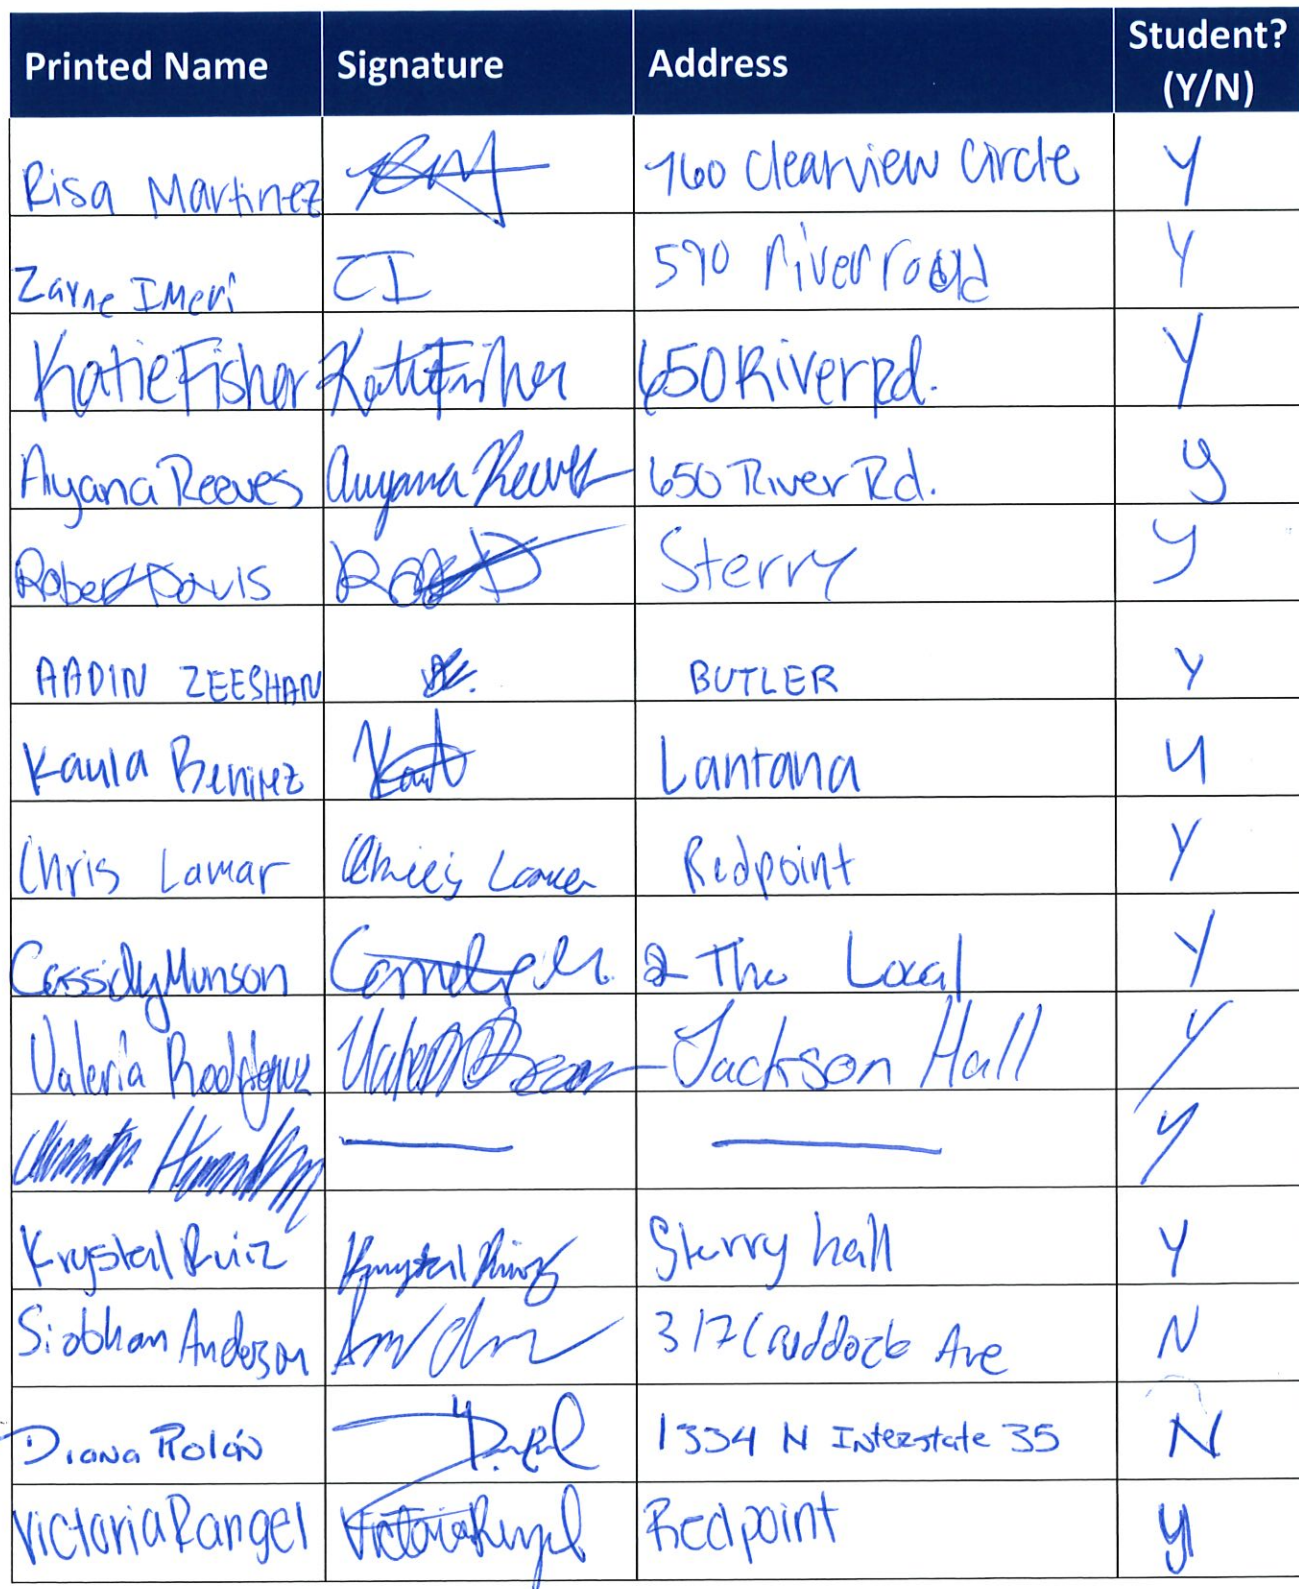 Printed Name Signature Address Student? (Y/N)
Risa Martinez RM 760 Clearview Circle Y
Zayne Imeri ZI 590 River road Y
Katie Fisher Katie Fisher 650 River Rd. Y
Ayana Reeves Ayana Reeves 650 River Rd. y
Robert Davis Sterry y
AADIN ZEESHAN BUTLER Y
Kayla Benitez Lantana y
Chris Lamar Chris Lamar Redpoint Y
Cassidy Munson The Local Y
Valeria Rodriguez Jackson Hall y
y
Krystal Ruiz Krystal Ruiz Sterry hall Y
Siobhan Anderson 317 Craddock Ave N
Diana Rolón 1334 N Interstate 35 N
Victoria Rangel Victoria Rangel Redpoint y